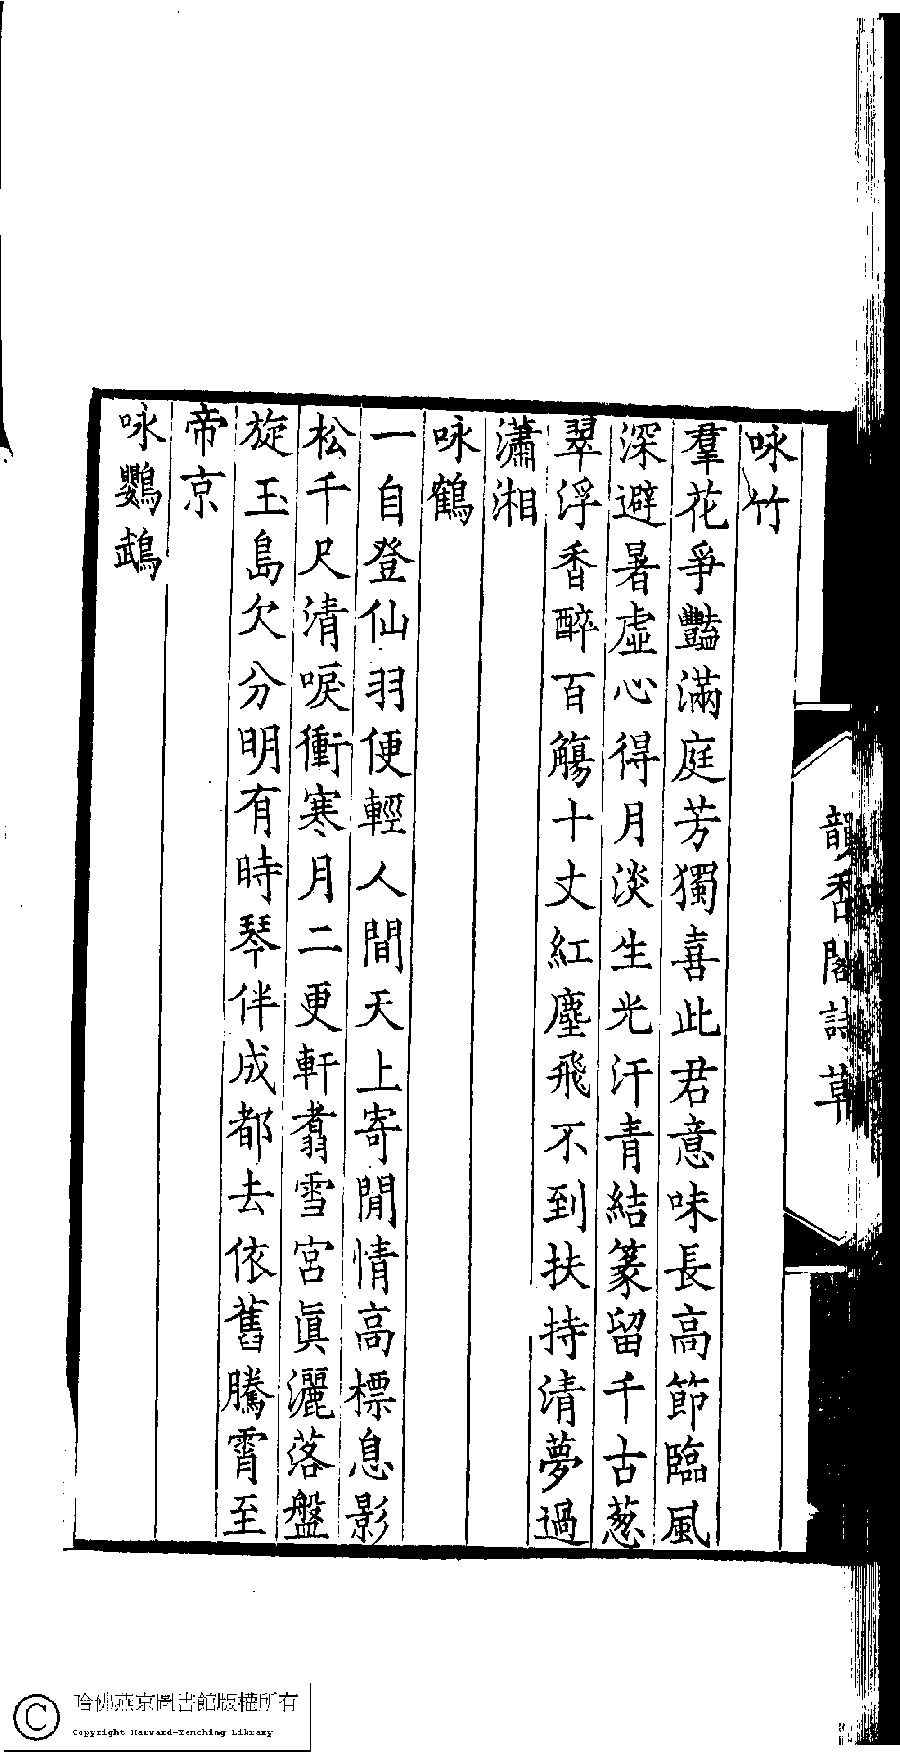 韻香閣詩草
咏竹
羣花爭豔滿庭芳獨喜此君意味長高節臨風
深避暑虛心得月淡生光汗青結篆留千古葱
翠浮香醉百觴十丈紅塵飛不到扶持清夢過
瀟湘
咏鶴
一自登仙羽便輕人間天上寄閒情高標息影
松千尺清唳衝寒月二更軒翥雪宮眞灑落盤
旋玉島欠分明有時琴伴成都去依舊騰霄至
帝京
咏鸚鵡
哈佛燕京圖書館版權所有
Copyright Harvard-Yenching Library